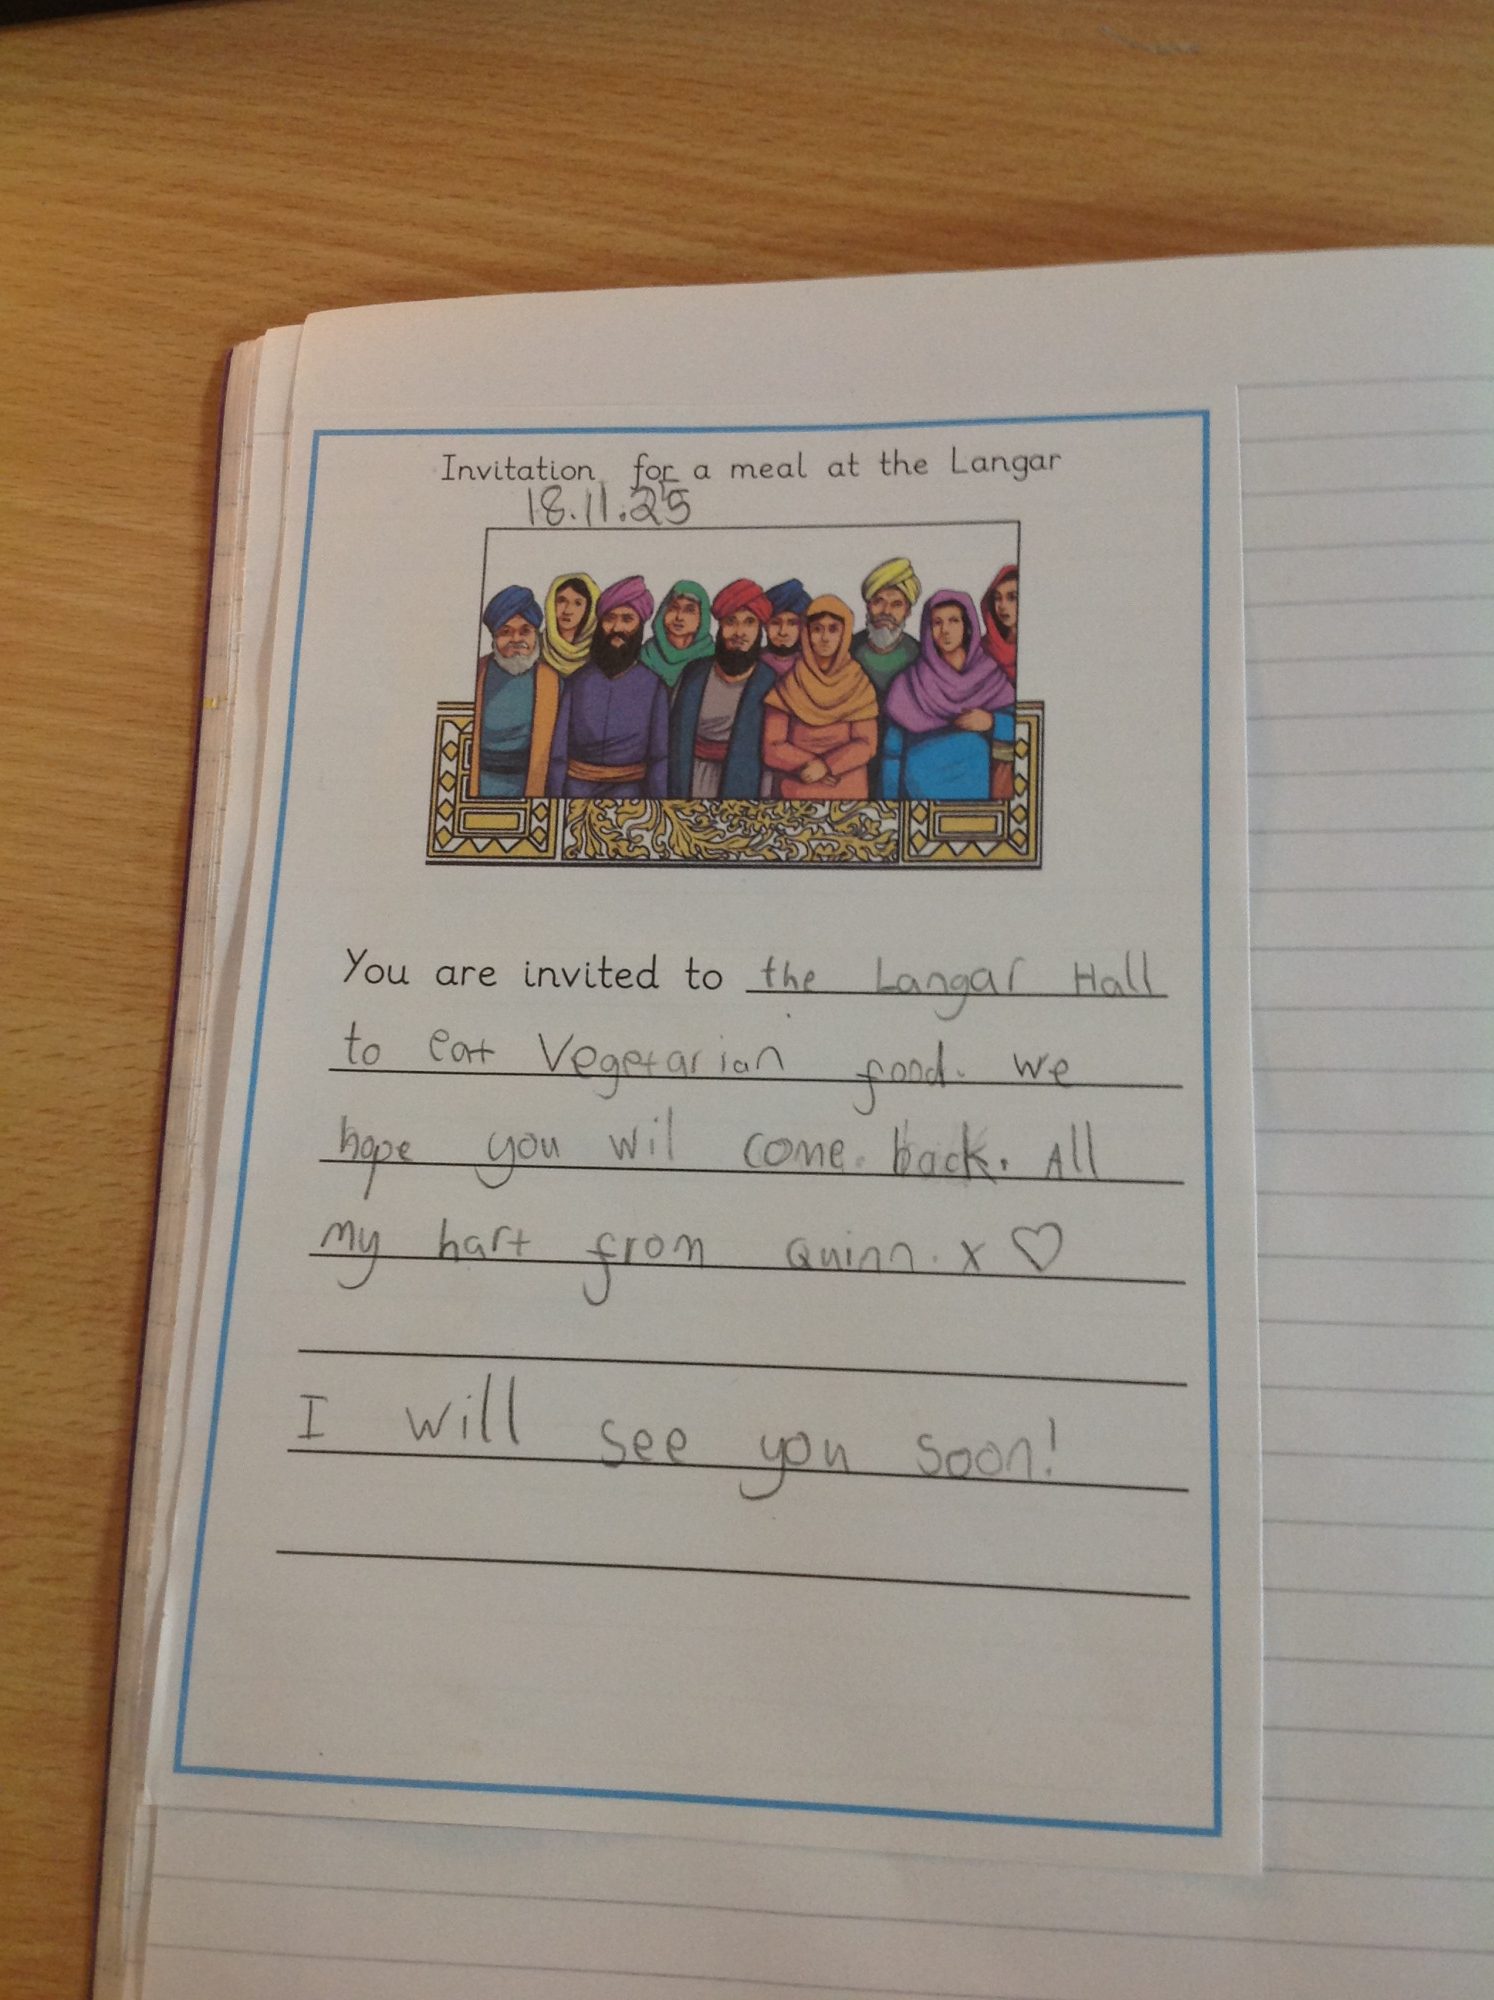 Invitation for a meal at the Langar
18.11.25
You are invited to the Langar Hall
to eat Vegetarian food. we
hope you wil come back. All
my hart from Quinn. x ♡
I will see you soon!